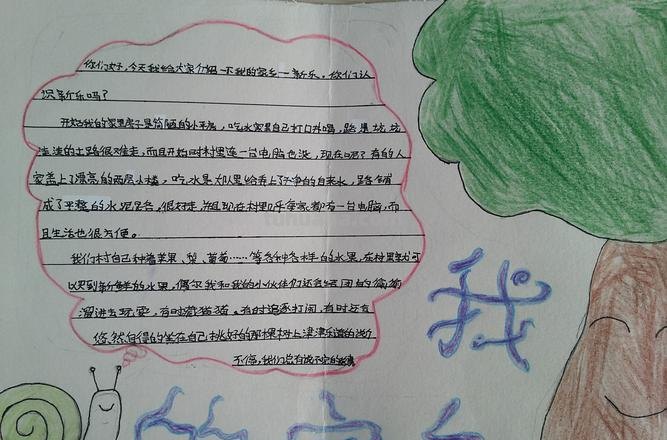 你们好,今天我给大家介绍一下我的家乡一新乐。你们认
识新乐吗?
开始我的家里房子是简陋的小平房,吃水家里自己打口井喝,路是坑坑
洼洼的土路很难走,而且开始时村里连一台电脑也没,现在呢?有的人
家盖上了漂亮的两层小楼,吃水是大队里给弄上了干净的自来水,路铺
成了平整的水泥路,很好走,并且现在村里几乎每家都有一台电脑,而
且生活也很方便。
我们村自己种着苹果、梨、葡萄……等各种各样的水果,在村里就可
以买到新鲜的水果,偶尔我和我的小伙伴们还会
溜进去玩耍,有时有时追逐打闹,有时还会
悠然自得的坐在自己挑好的那棵树上津津乐道的
不停,我们总有说不完的
我
的家乡